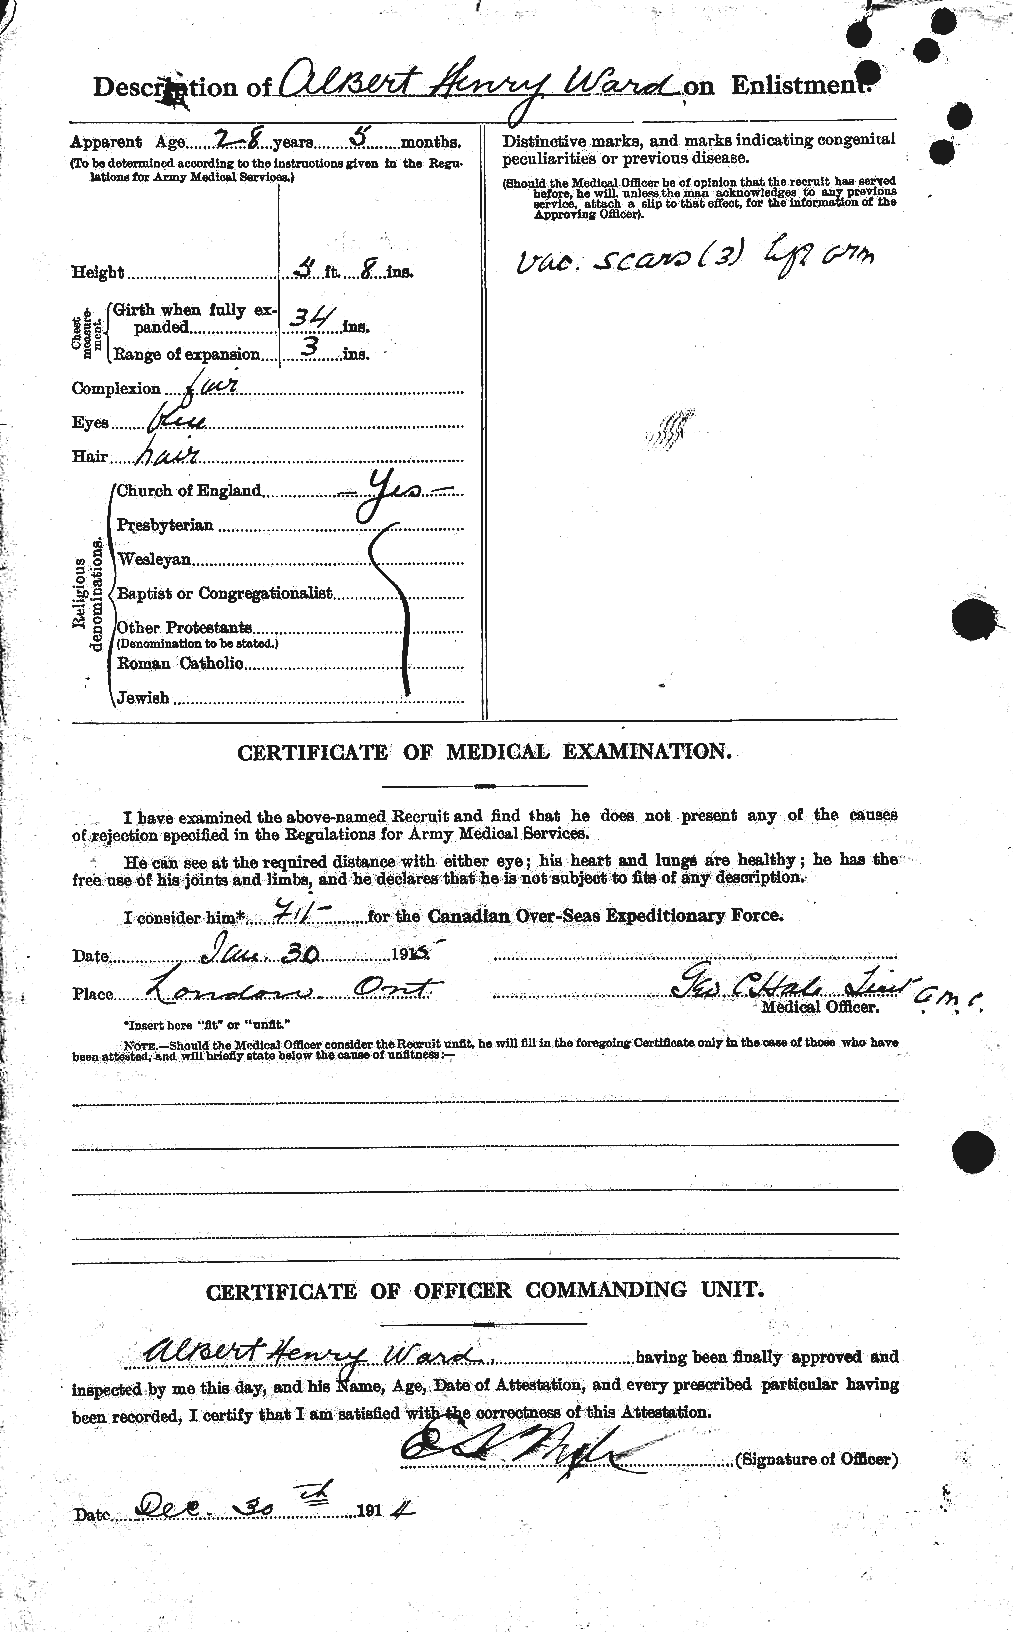 Description of Albert Henry Ward on Enlistment.
Apparent Age 28 years 5 months.
(To be determined according to the instructions given in the Regu-
lations for Army Medical Services.)
Height 5 ft. 8 ins.
Chest measure-
ment.
Girth when fully ex-
panded 34 ins.
Range of expansion 3 ins.
Complexion fair
Eyes
Hair hair
Religious
denominations.
Church of England — Yes —
Presbyterian
Wesleyan
Baptist or Congregationalist
Other Protestants
(Denomination to be stated.)
Roman Catholic
Jewish
Distinctive marks, and marks indicating congenital
peculiarities or previous disease.
(Should the Medical Officer be of opinion that the recruit has served
before, he will, unless the man acknowledges to any previous
service, attach a slip to that effect, for the information of the
Approving Officer).
Vac. scars (3) left arm
CERTIFICATE OF MEDICAL EXAMINATION.
I have examined the above-named Recruit and find that he does not present any of the causes
of rejection specified in the Regulations for Army Medical Services.
He can see at the required distance with either eye; his heart and lungs are healthy; he has the
free use of his joints and limbs, and he declares that he is not subject to fits of any description.
I consider him* fit for the Canadian Over-Seas Expeditionary Force.
Date Jan. 30 1915
Place London Ont
Geo C Hale Lieut A.M.C.
Medical Officer.
*Insert here "fit" or "unfit."
NOTE.—Should the Medical Officer consider the Recruit unfit, he will fill in the foregoing Certificate only in the case of those who have
been attested, and will briefly state below the cause of unfitness:—
CERTIFICATE OF OFFICER COMMANDING UNIT.
Albert Henry Ward having been finally approved and
inspected by me this day, and his Name, Age, Date of Attestation, and every prescribed particular having
been recorded, I certify that I am satisfied with the correctness of this Attestation.
(Signature of Officer)
Date Dec. 30th 1914